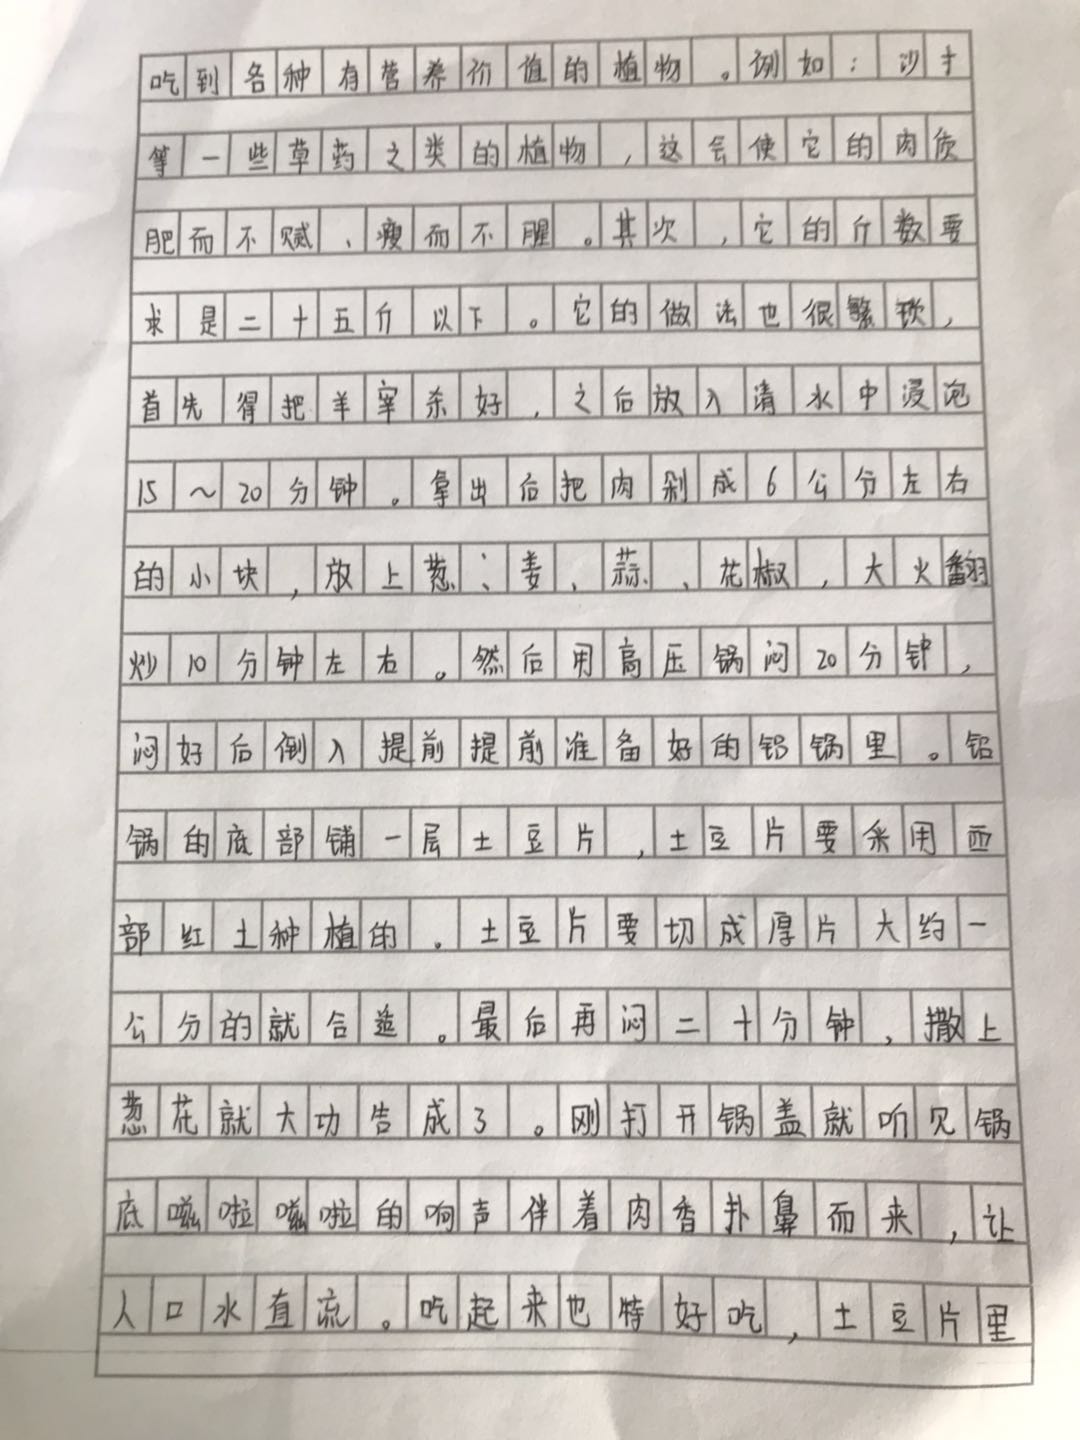 吃到各种有营养价值的植物。例如：沙扌
等一些草药之类的植物，这会使它的肉质
肥而不腻、瘦而不腥。其次，它的斤数要
求是二十五斤以下。它的做法也很繁琐，
首先得把羊宰杀好，之后放入清水中浸泡
15～20分钟。拿出后把肉剁成6公分左右
的小块，放上葱、姜、蒜、花椒，大火翻
炒10分钟左右。然后用高压锅闷20分钟，
闷好后倒入提前提前准备好的铝锅里。铝
锅的底部铺一层土豆片，土豆片要采用西
部红土种植的。土豆片要切成厚片大约一
公分的就合造。最后再闷二十分钟，撒上
葱花就大功告成了。刚打开锅盖就听见锅
底嗞啦嗞啦的响声伴着肉香扑鼻而来，让
人口水直流。吃起来也特好吃，土豆片里